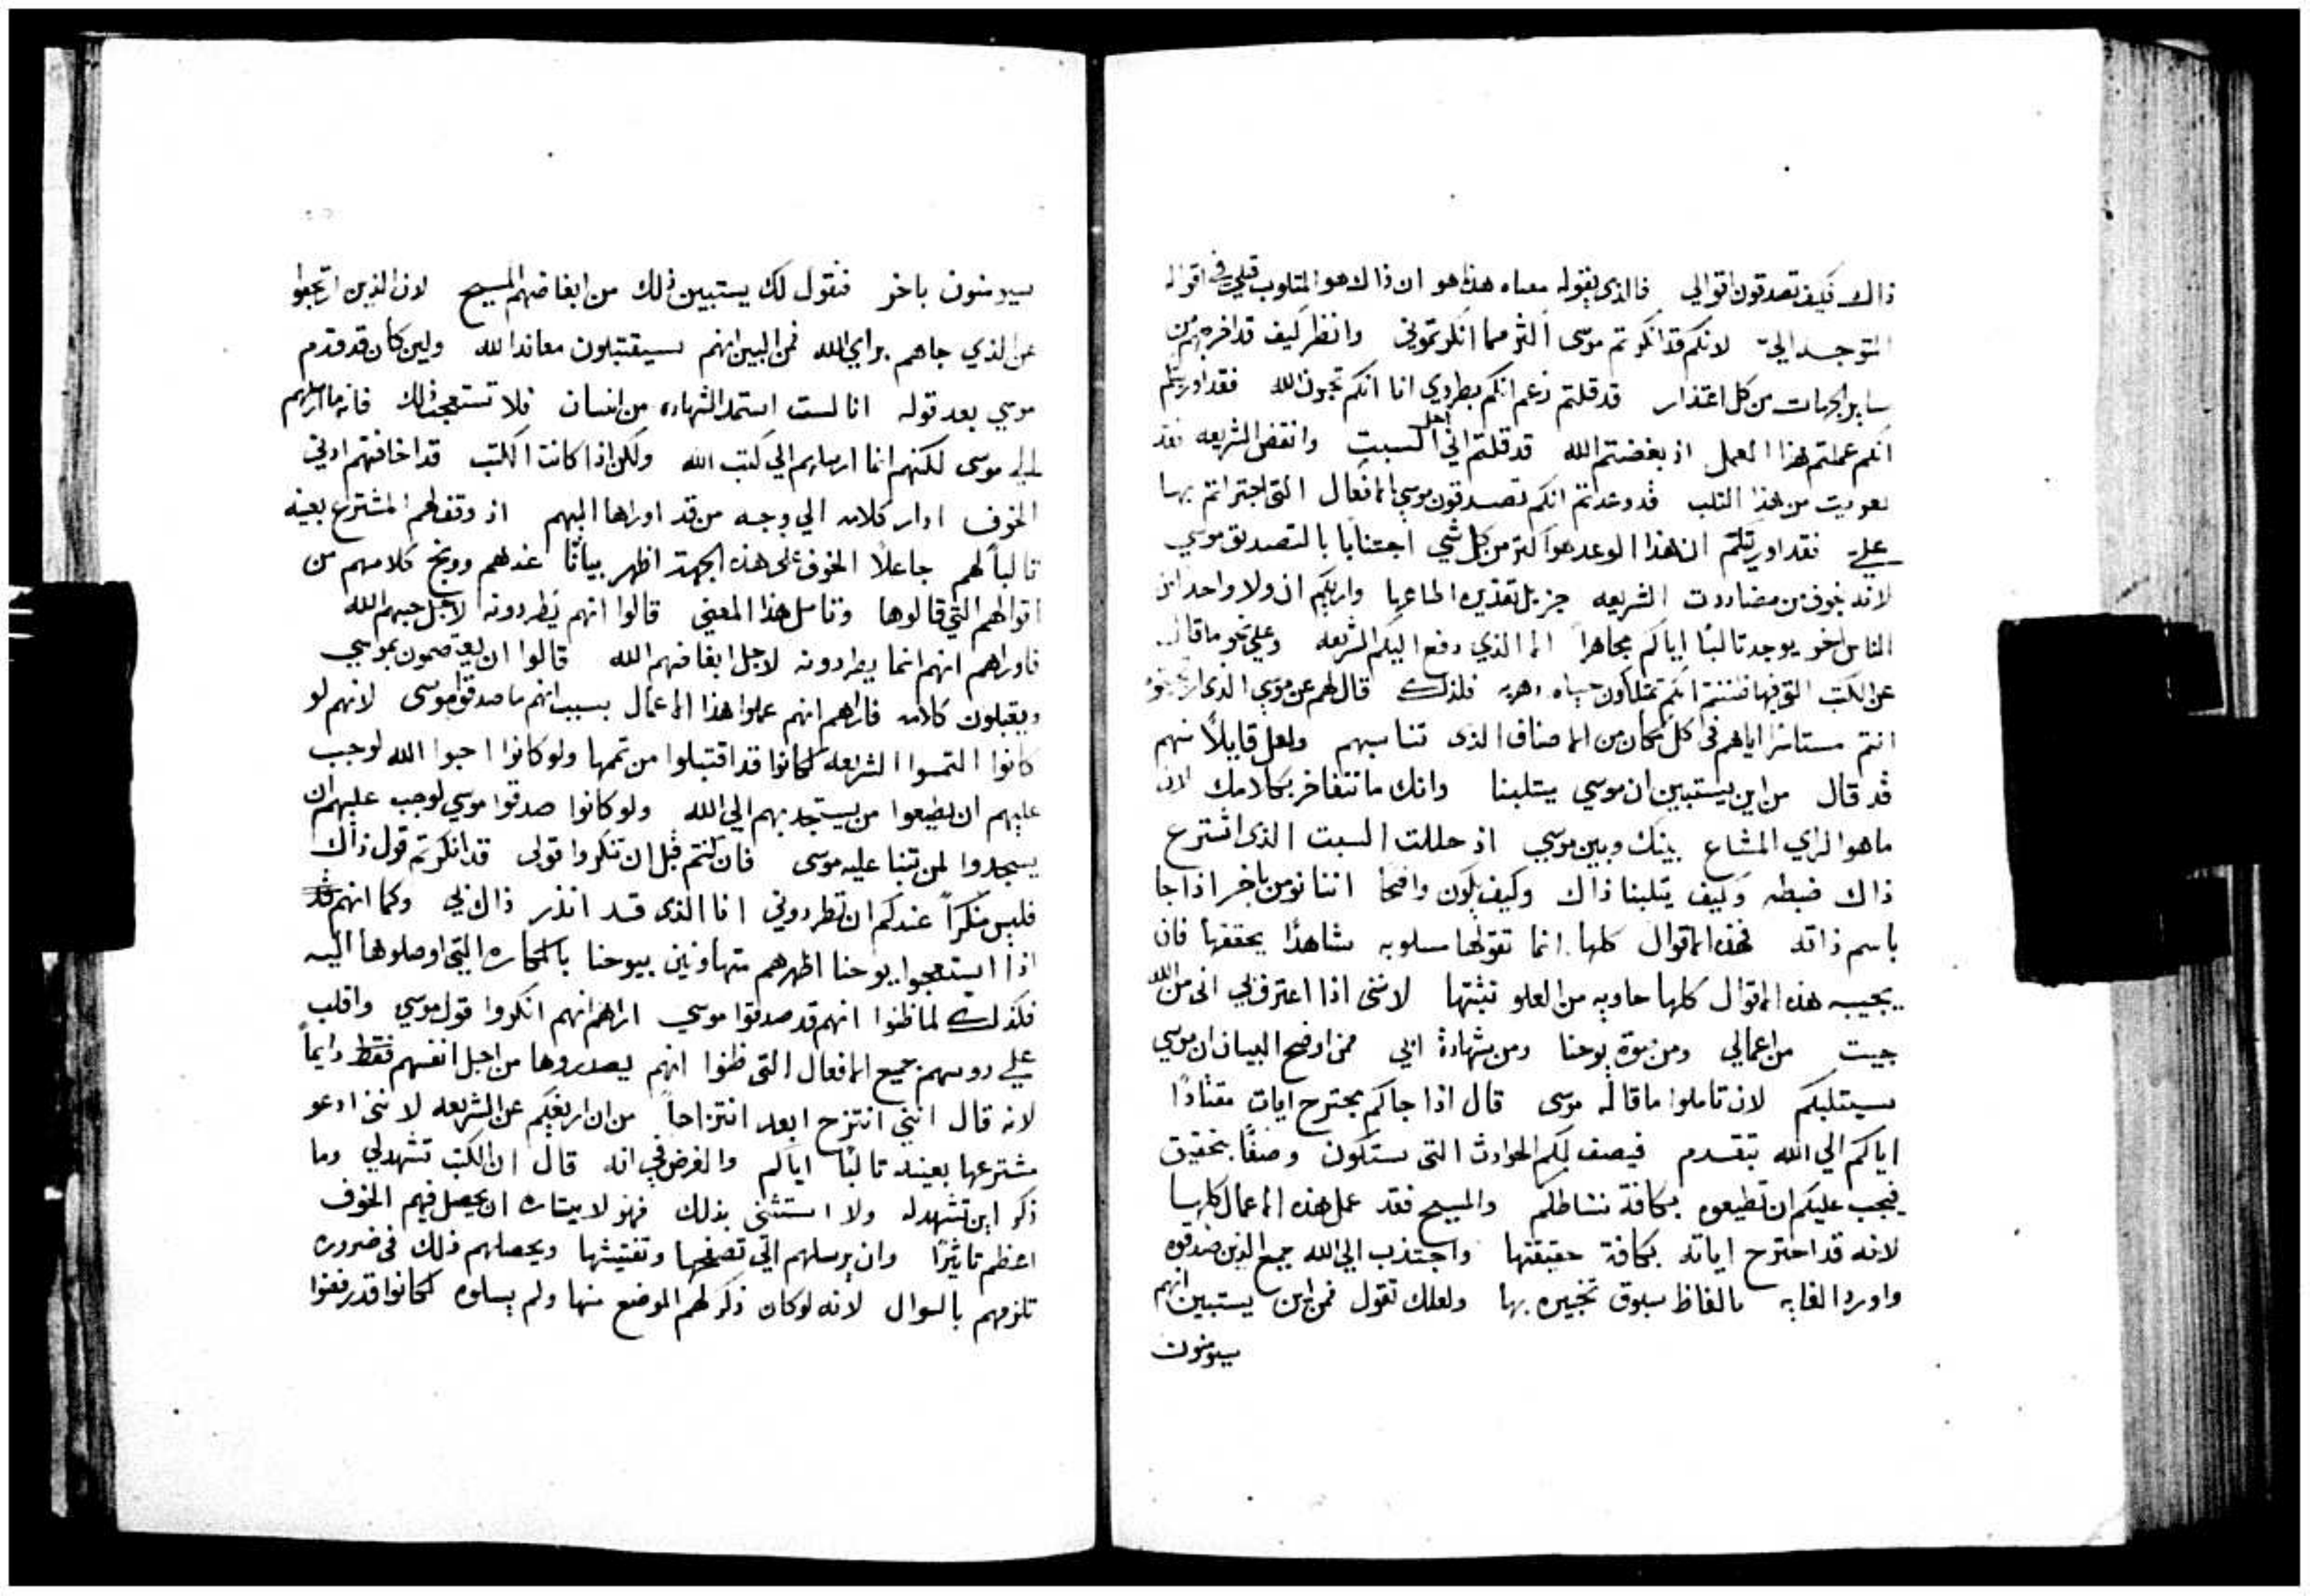 ذاك فكيف تصدقون اقوالي فالذي يقوله معناه هذا هو ان ذاك هو المثلوب قبلي في اقواله
المتوجه الي لانكم قد انكرتم موسى اكثر مما انكرتموني وانظر كيف قد اخرجهم من
ساير الجهات من كل اعتذار قد قلتم زعم انكم بطردي انا انكم تحبون الله فقد اوريتكم
انكم عملتم هذا العمل اذ بغضتم الله قد قلتم اني احل السبت وانقض الشريعه فقد
عوديت من هذا الثلب قد وعدتم انكم تصدقون موسي الافعال التي اجتراتم بها
علي فقد اوريتكم ان هذا الوعد هو اكثر من كل شي اجتنابا بالتصديق موسي
لانه بخوف من مضاددت الشريعه جزيل تقديره الماعريا واريكم ان ولا واحد من
الناس اخر يوجد ثالبا اياكم مجاهرا الا الذي دفع اليكم الشريعه وعلي نحو ما قال
عن الكتب التي فيها ظننتم انكم تمتلكون حياه دهريه فلذلك قال لهم عن موسي الذي ارتجيتموه
انتم مستاسرا اياهم في كل مكان من الاصناف الذي تناسبهم ولعل قايلا منهم
قد قال من اين يستبين ان موسي يثلبنا وانك ما تتفاخر بكلامك لان
ما هو الراي المشاع بينك وبين موسي اذ حللت السبت الذي اشترع
ذاك ضبطه وكيف يثلبنا ذاك وكيف يكون واضحا اننا نومن باخر اذا جا
باسم ذاته فهذه الاقوال كلها انما تقولها مسلوبه شاهدا يحققها فان
يجيبه هذه الاقوال كلها حاويه من العلو تثبتها لانني اذا اعترف لي اني من الله
جيت من اعمالي ومن نبوة يوحنا ومن شهادة ابي فمن اوضح البيان ان موسي
سيثلبكم لان تاملوا ما قاله موسى قال اذا جاكم مجترح ايات مقتادا
اياكم الي الله يتقدم فيصف لكم الحوادث التي ستكون وصفا بتحقيق
فيجب عليكم ان تطيعوه بكافة نشاطكم والمسيح فقد عمل هذه الاعمال كلها
لانه قد اجترح اياته بكافة حقيقتها واجتذب الي الله جميع الذين صدقوه
واورد الغايه بالفاظ سبوق تخبيره بها ولعلك تقول فمن اين يستبين انهم
سيومنون
سيومنون باخر فنقول لك يستبين ذلك من ابغاضهم المسيح لان الذين ارتجعوا
عن الذي جاهم براي الله فمن البين انهم سيقتبلون معاندا لله ولين كان قد قدم
موسي بعد قوله انا لست استمد الشهاده من انسان فلا تستعجب ذلك فانه ما ارسلهم
الي موسى لكنهم انما ارسلهم الي كتب الله ولكن اذا كانت الكتب قد اخافتهم ادني
الخوف ادار كلامه الي وجه من قد اوراها اليهم اذ وقف لهم المشترع بعينه
ثالبا لهم جاعلا الخوف على هذه الجهة اظهر بيانا عندهم ووبخ كلامهم من
اقوالهم التي قالوها وتامل هذا المعني قالوا انهم يطردونه لاجل حبهم الله
فاوراهم انهم انما يطردونه لاجل ابغاضهم الله قالوا ان يعتصمون بموسي
ويقبلون كلامه فاراهم انهم عملوا هذا الاعمال بسبب انهم ما صدقوا موسى لانهم لو
كانوا التمسوا الشريعه لكانوا قد اقتبلوا من تممها ولو كانوا احبوا الله لوجب
عليهم ان يطيعوا من يستجذبهم الي الله ولو كانوا صدقوا موسي لوجب عليهم ان
يسجدوا لمن تنبا عليه موسى فان كنتم قبل ان تنكروا قولي قد انكرتم قول ذاك
فليس منكرا عندكم ان تطردوني انا الذي قد انذر ذاك بي وكما انهم قد
اذا استعجبوا يوحنا اظهرهم متهاونين بيوحنا بالمكاره التي اوصلوها اليه
فكذلك لما ظنوا انهم قد صدقوا موسي اراهم انهم انكروا قول موسي واقلب
علي روسهم جميع الافعال التي ظنوا انهم يصدروها من اجل انفسهم فقط دايما
لانه قال انني انتزح ابعد انتزاحا من ان اريغكم عن الشريعه لانني ادعو
مشترعها بعينه ثالبا اياكم والغرض في انه قال ان الكتب تشهد لي وما
ذكر اين تشهد له ولا استثني بذلك فهو لايثاره ان يحصل فيهم الخوف
اعظم تاثيرا وان يرسلهم الي تصفحها وتفتيشها ويحصلهم ذلك في ضروره
تلزمهم بالسوال لانه لو كان ذكر لهم الموضع منها ولم يسلوه لكانوا قد رفضوا